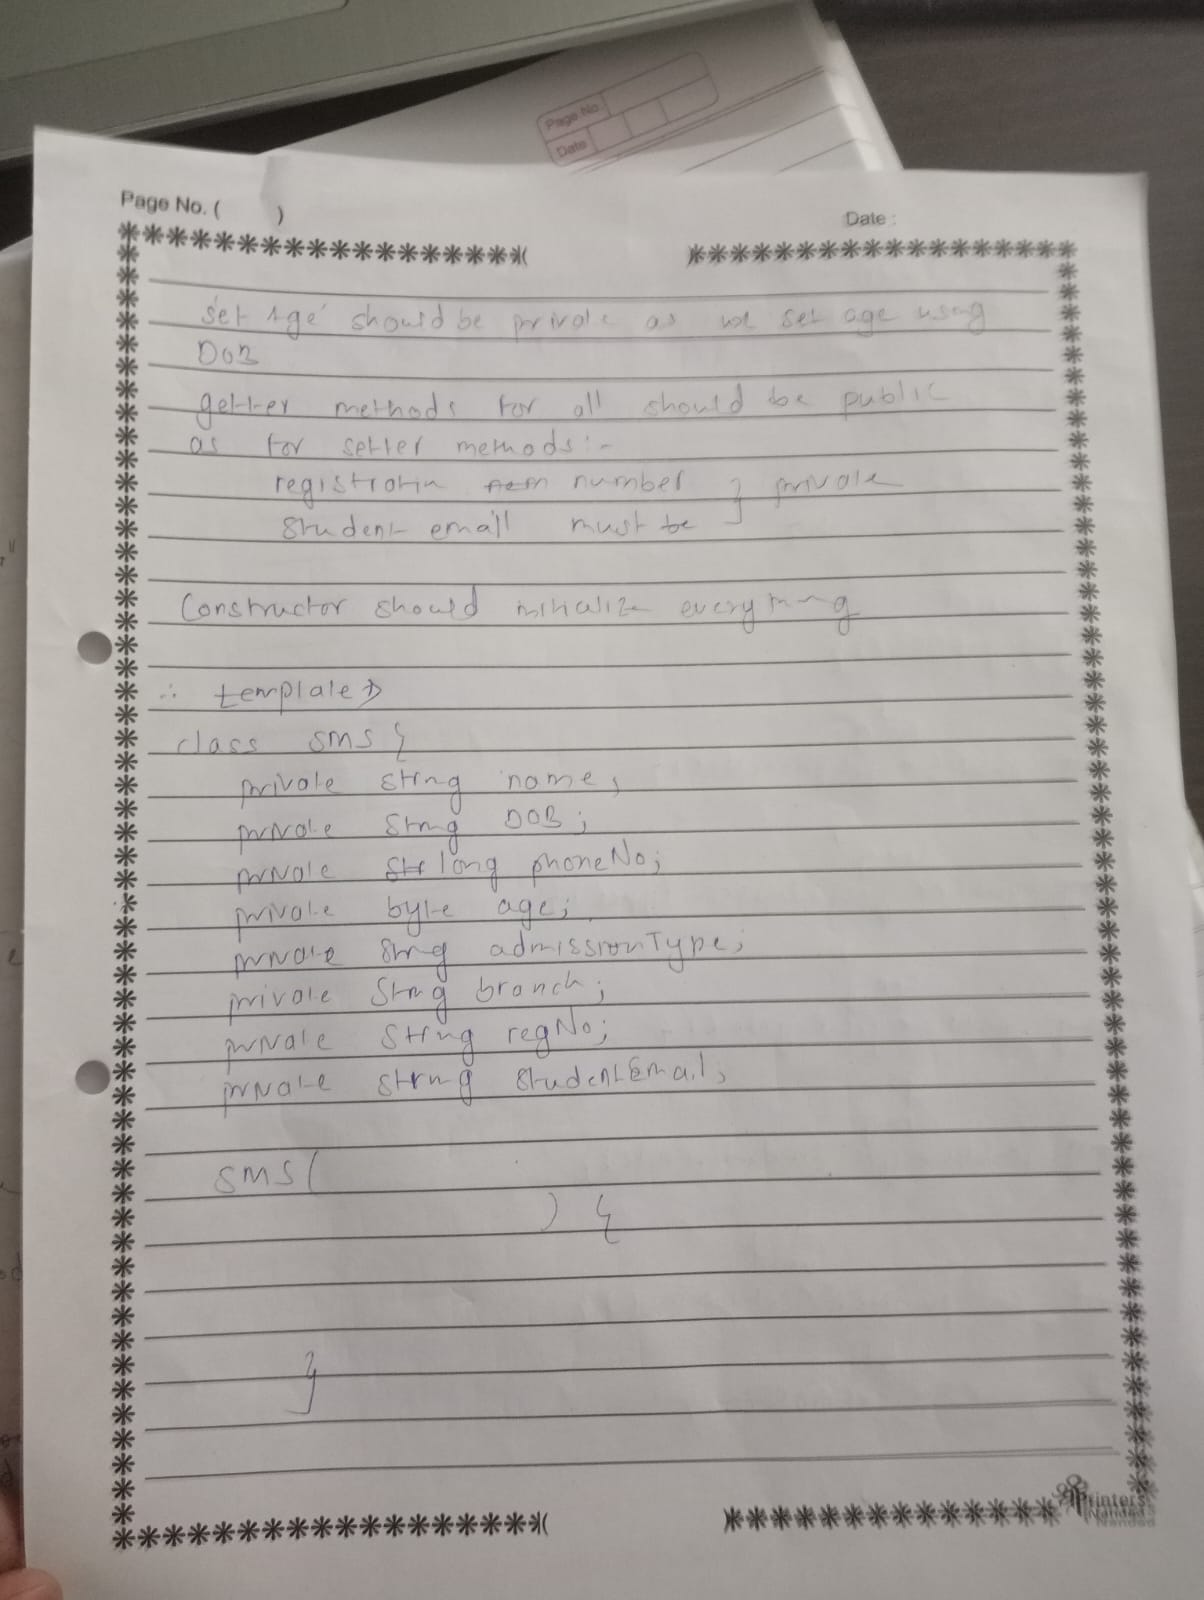 Page No.
Date
Page No. ( )
Date :
'set Age' should be private as we set age using
DOB
getter methods for all should be public
as for setter methods :-
registration number } private
student email must be
Constructor should initialize everything
∴ template →
class SMS {
private String name;
private String DOB;
private long phoneNo;
private byte age;
private String admissionType;
private String branch;
private String regNo;
private String studentEmail;
SMS (
) {
}
Printers
Nanded